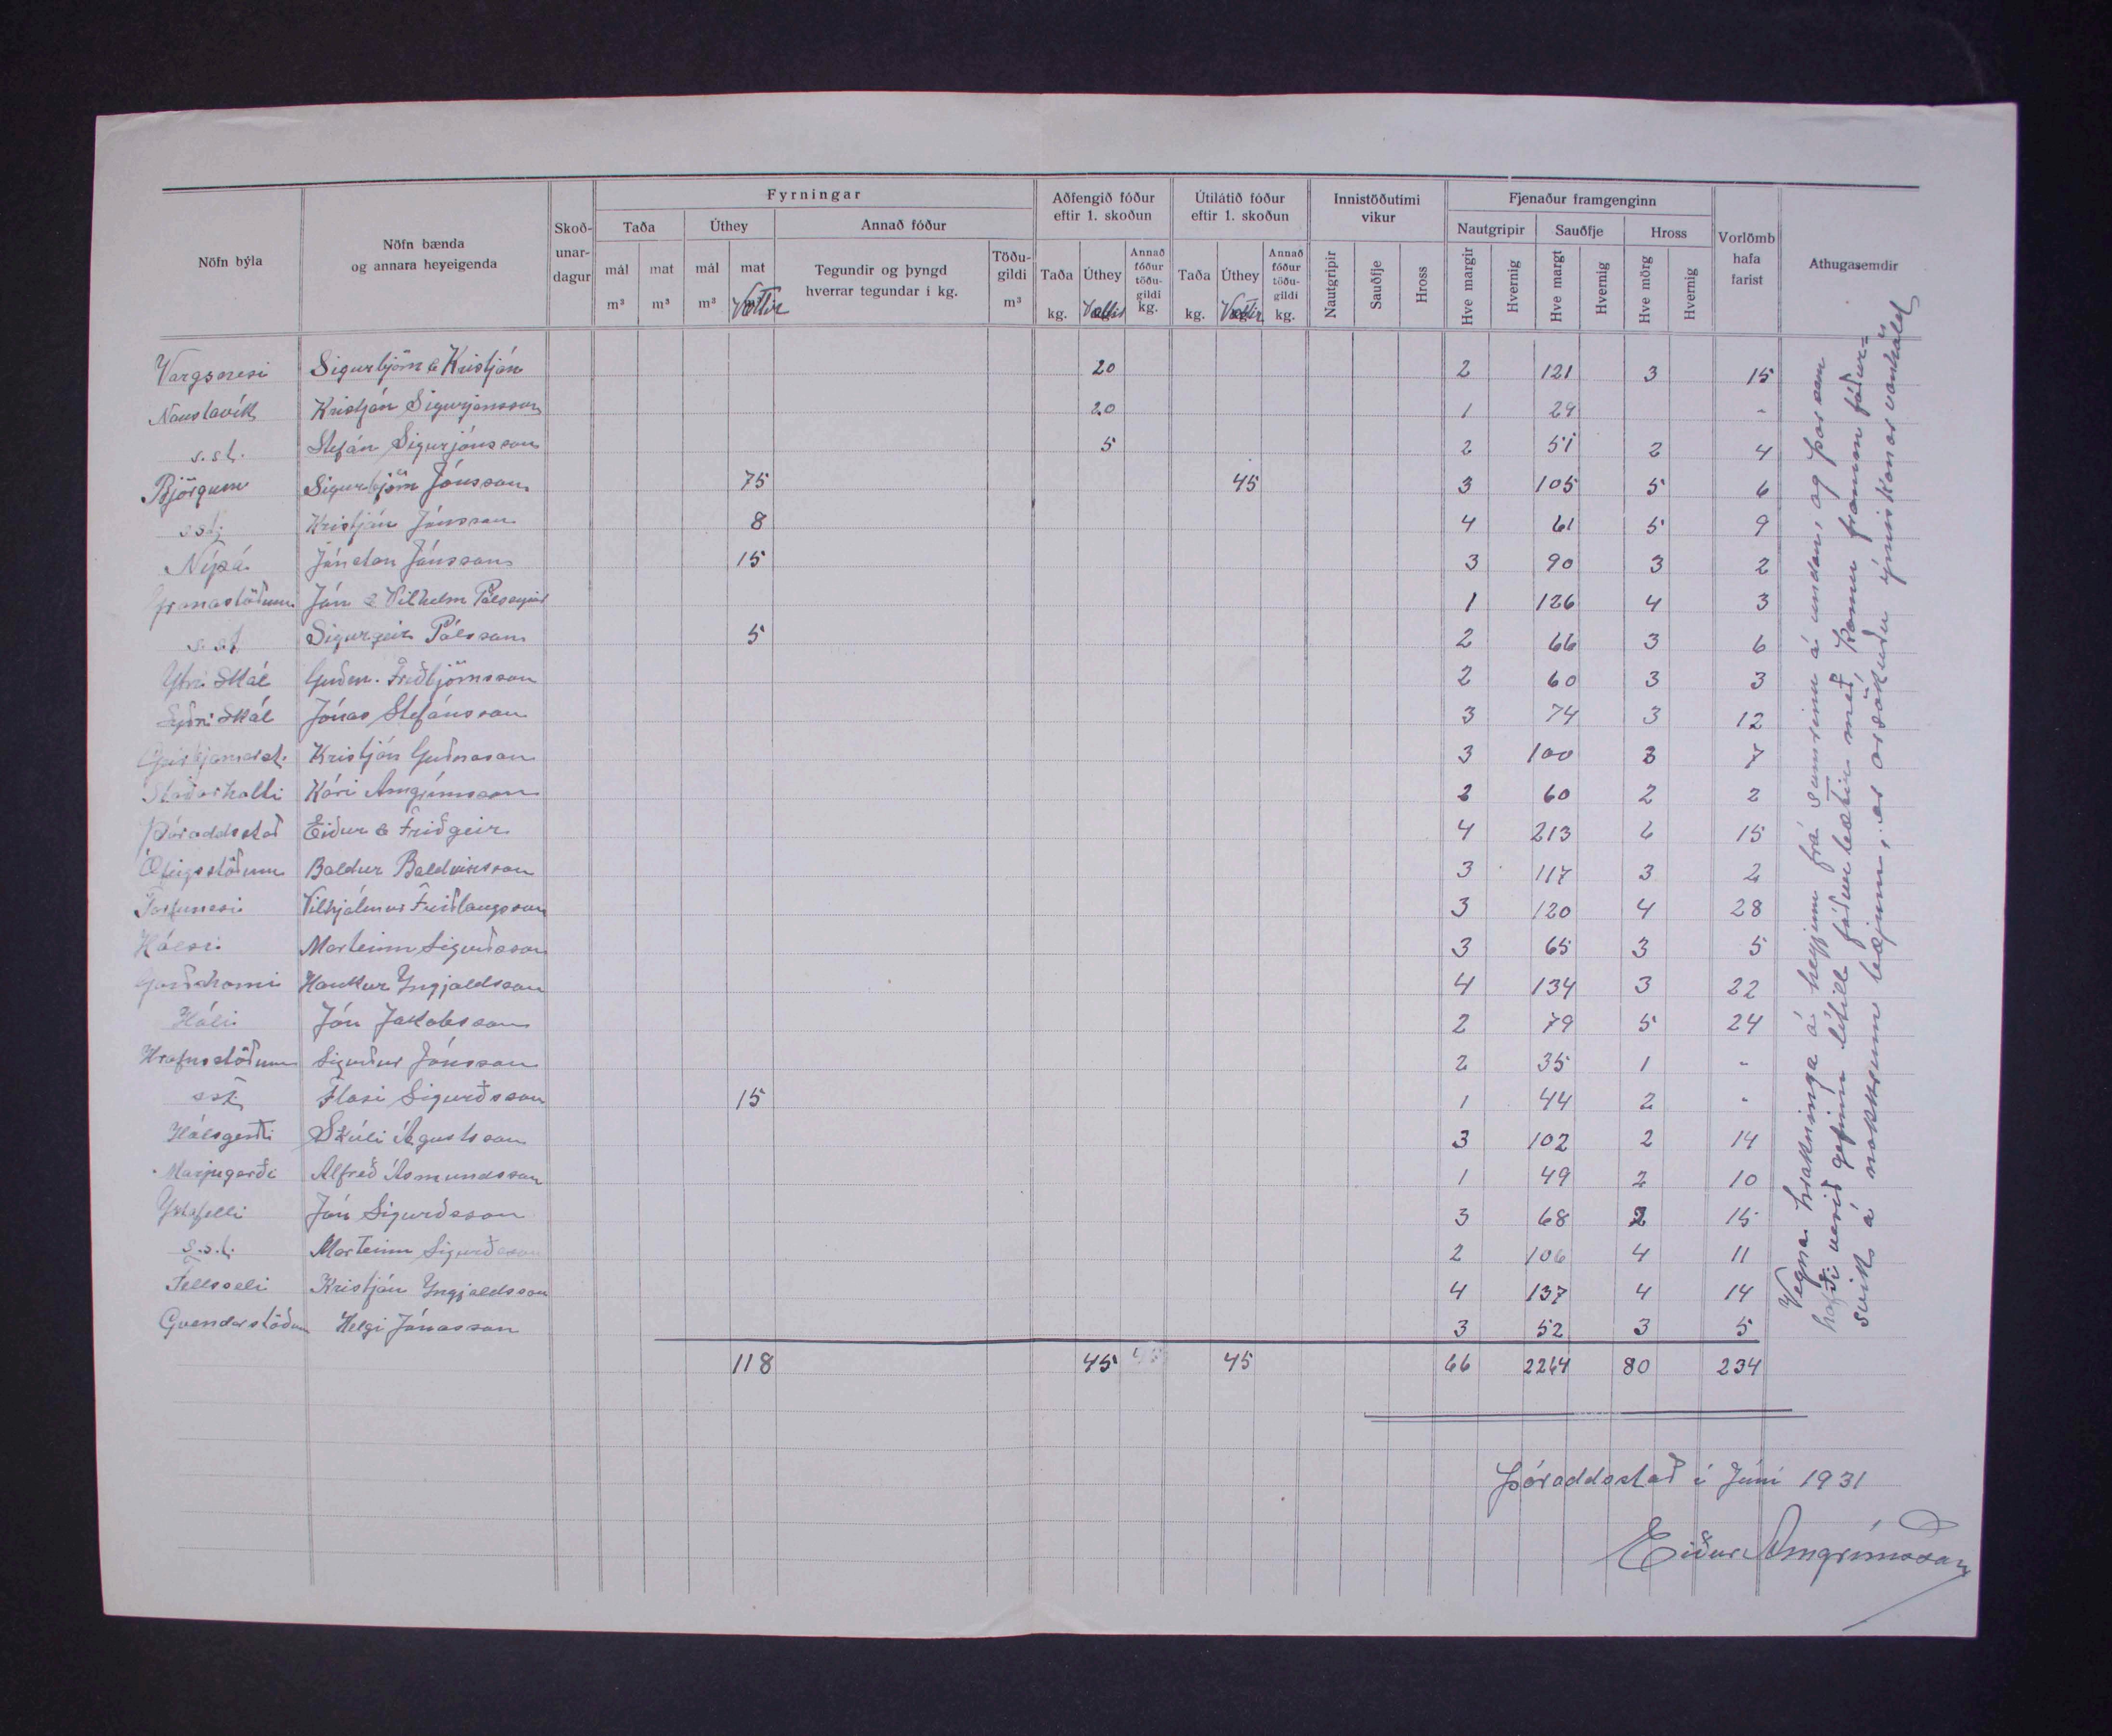 Nöfn býla
Nöfn bænda og annara heyeigenda
Skoðunardagur
Fyrningar
Taða
Úthey
Annað fóður
mál m³
mat m³
mál m³
mat m³ Vættir
Tegundir og þyngd hverrar tegundar í kg.
Töðugildi m³
Aðfengið fóður eftir 1. skoðun
Taða kg.
Úthey Vættir
Annað fóður töðugildi kg.
Útilátið fóður eftir 1. skoðun
Taða kg.
Úthey Vættir
Annað fóður töðugildi kg.
Innistöðutími vikur
Nautgripir
Sauðfje
Hross
Fjenaður framgenginn
Nautgripir
Sauðfje
Hross
Hve margir
Hvernig
Hve margt
Hvernig
Hve mörg
Hvernig
Vorlömb hafa farist
Athugasemdir
Vargsnesi Sigurbjörn & Kristján 20 2 121 3 15
Naustavík Kristján Sigurjónsson 20 1 29 -
s.st. Stefán Sigurjónsson 5 2 51 2 4
Björgum Sigurbjörn Jónsson 75 45 3 105 5 6
sst. Kristján Jónsson 8 4 61 5 9
Nípá Jónatan Jónsson 15 3 90 3 2
Jón & Vilhelm Pálssynir 1 126 4 3
s.st. Sigurgeir Pálsson 5 2 66 3 6
Ytri Skál Guðm. Friðbjörnsson 2 60 3 3
Syðri Skál Jónas Stefánsson 3 74 3 12
Kristján Guðnason 3 100 3 7
Staðarholti Kári Arngrímsson 2 60 2 2
Þóroddstað Eiður & Friðgeir 4 213 6 15
Ófeigsstöðum Baldur Baldvinsson 3 117 3 2
Torfunesi Vilhjálmur Friðlaugsson 3 120 4 28
Hálsi Marteinn Sigurðsson 3 65 3 5
Garðshorni Haukur Yngjaldsson 4 134 3 22
Hóli Jón Jakobsson 2 79 5 24
Hrafnsstöðum Sigurður Jónsson 2 35 1 -
sst. Flosi Sigurðsson 15 1 44 2 -
Hálsgerði Skúli Ágústsson 3 102 2 14
Marjugerði Alfreð Ásmundsson 1 49 2 10
Ystafelli Jón Sigurðsson 3 68 2 15
s.st. Marteinn Sigurðsson 2 106 4 11
Fellsseli Kristján Yngjaldsson 4 137 4 14
Gvendarstöðum Helgi Jónasson 3 52 3 5
118 45 45 66 2264 80 234
Vegna hrakninga á heyjum frá sumrinu á undan, og þar sem
hafði verið gefinn lítill fóðurbætir með, komu framm fóður-
svik á nokkrum bæjum, er orsökuðu ýmiskonar vanhöld
Þóroddstað í Júní 1931
Eiður Arngrímsson